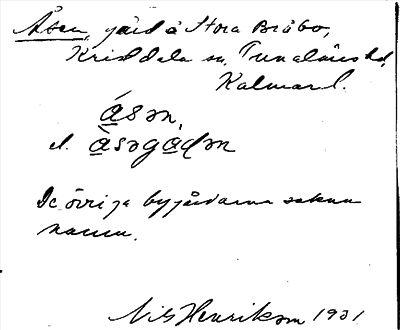 Åsen, gård å Stora Bråbo,
Kristdala sn, Tunaläns hd,
Kalmar l.
ásən,
el. àsəgáḍən
De övriga bygårdarna sakna
namn.
Nils Henrikson 1931